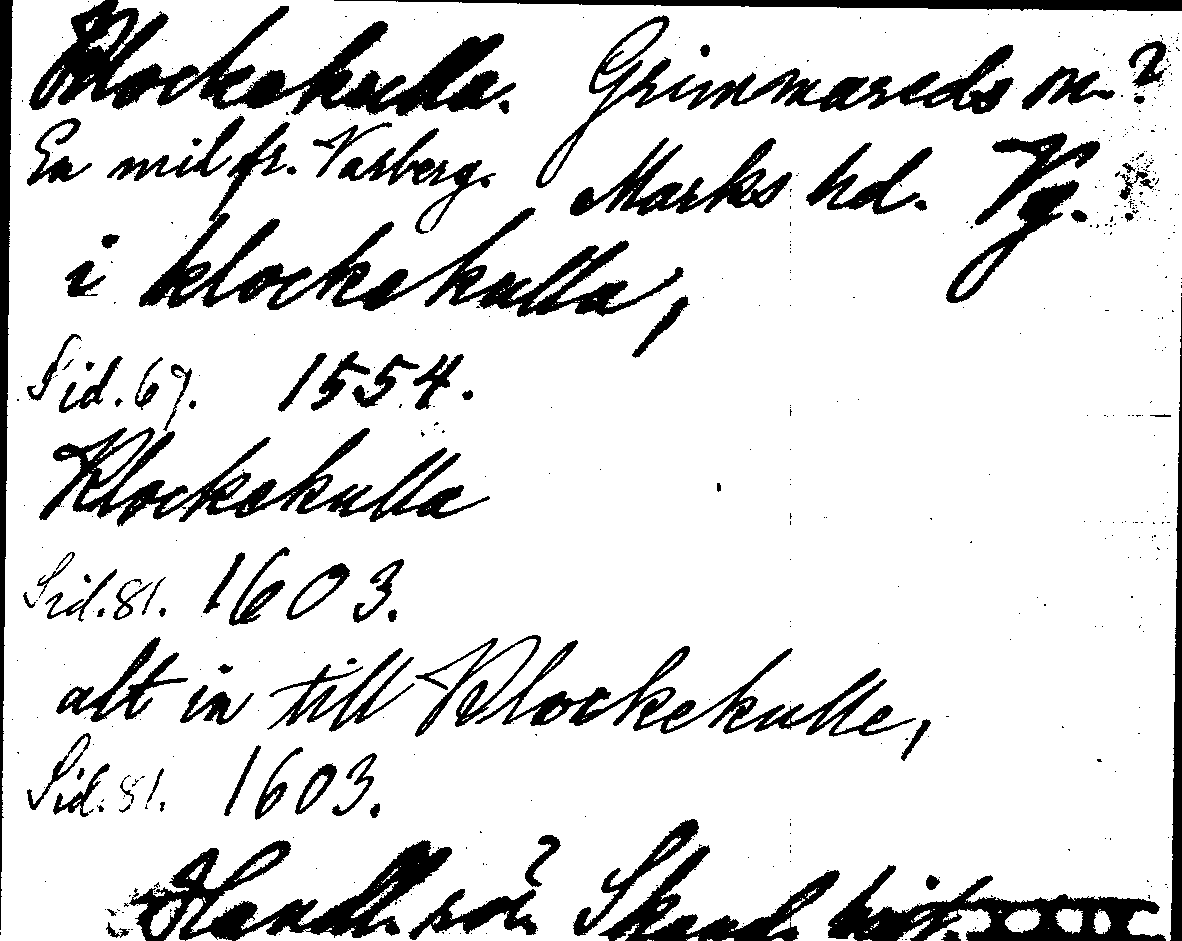 Klockekulla. Grimmareds sn.?
En mil fr. Varberg. Marks hd. Vg.
i klockekulla,
Sid. 67. 1554.
Klockekulla
Sid. 81. 1603.
alt in till Klockekulle,
Sid. 81. 1603.
Handl. rör. Skand. hist.